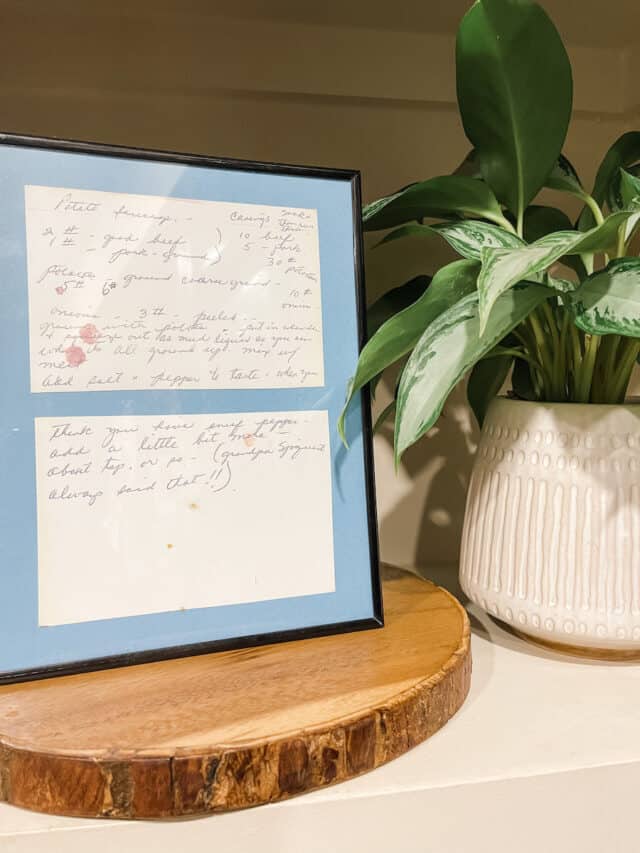 Potato sausage. -
2 #
1 # - good beef
- pork - ground
Casings
10 beef
5 - pork
30 #
potatoes
10 #
onions
potatoes
5 # 6 # - ground coarse ground -
onions - 3 # - peeled - -
with potatoes - put in
out as much liquid as you can
all ground up. mix w/
meat
Add salt & pepper to taste, when you
think you have enuf pepper -
add a little bit more -
about tsp. or so - (grandpa Sjoquist
always said that!!)